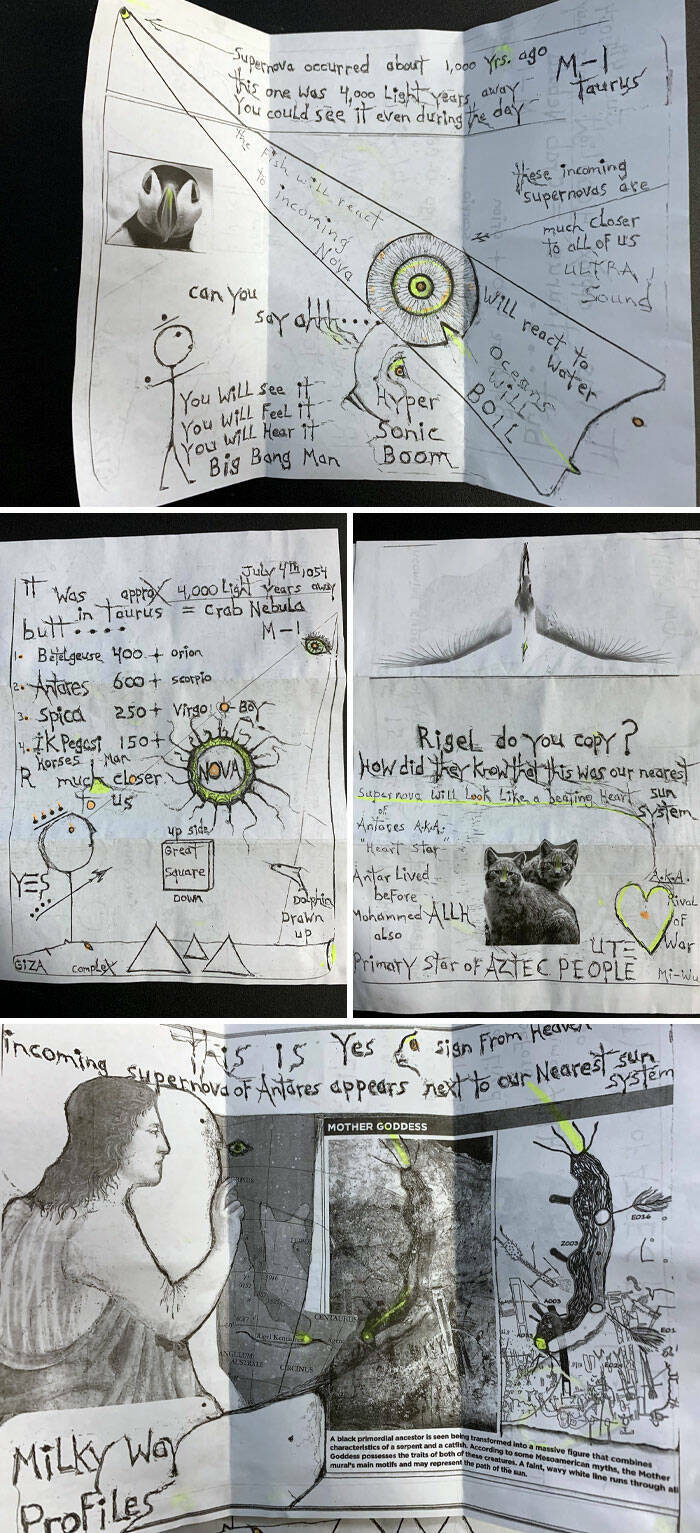 Supernova occurred about 1,000 Yrs. ago
this one was 4,000 Light years, away
You could see it even during the day
M-1
Taurus
the Fish will react
to incoming
Nova
these incoming
supernovas are
much closer
to all of us
ULTRA
Sound
can you
say ahh....
Will react to
Water
Oceans
Will
BOIL
You Will See it
You Will Feel it
You Will Hear it
Big Bang Man
Hyper
Sonic
Boom
July 4th, 1,054
it was approx 4,000 Light Years away
in Taurus = Crab Nebula
butt....
M-1
1. Betelgeuse 400+ orion
2. Antares 600+ scorpio
3. Spica 250+ Virgo Boy
4. iK Pegasi 150+
Horses Man
R much closer
to us
NOVA
YES
up side
Great
Square
DOWN
Dolphin
Drawn
up
GiZA complex
Rigel do you copy?
How did they know that this was our nearest
sun
system
Supernova Will Look Like a beating Heart
of
Antares A.K.A.
"Heart Star"
Antar Lived
before
Mohammed ALLH
also
A.K.A.
Rival
of
War
UTE
Mi-Wu
Primary Star of AZTEC PEOPLE
This is Yes a sign From Heaven
incoming supernova of Antares appears next to our Nearest sun
system
MOTHER GODDESS
E016
Z003
A003
E01
CENTAURUS
Rigel Kentaurus
CIRCINUS
AUSTRALE
A black primordial ancestor is seen being transformed into a massive figure that combines
characteristics of a serpent and a catfish. According to some Mesoamerican myths, the Mother
Goddess possesses the traits of both of these creatures. A faint, wavy white line runs through all
mural's main motifs and may represent the path of the sun.
Milky Way
Profiles